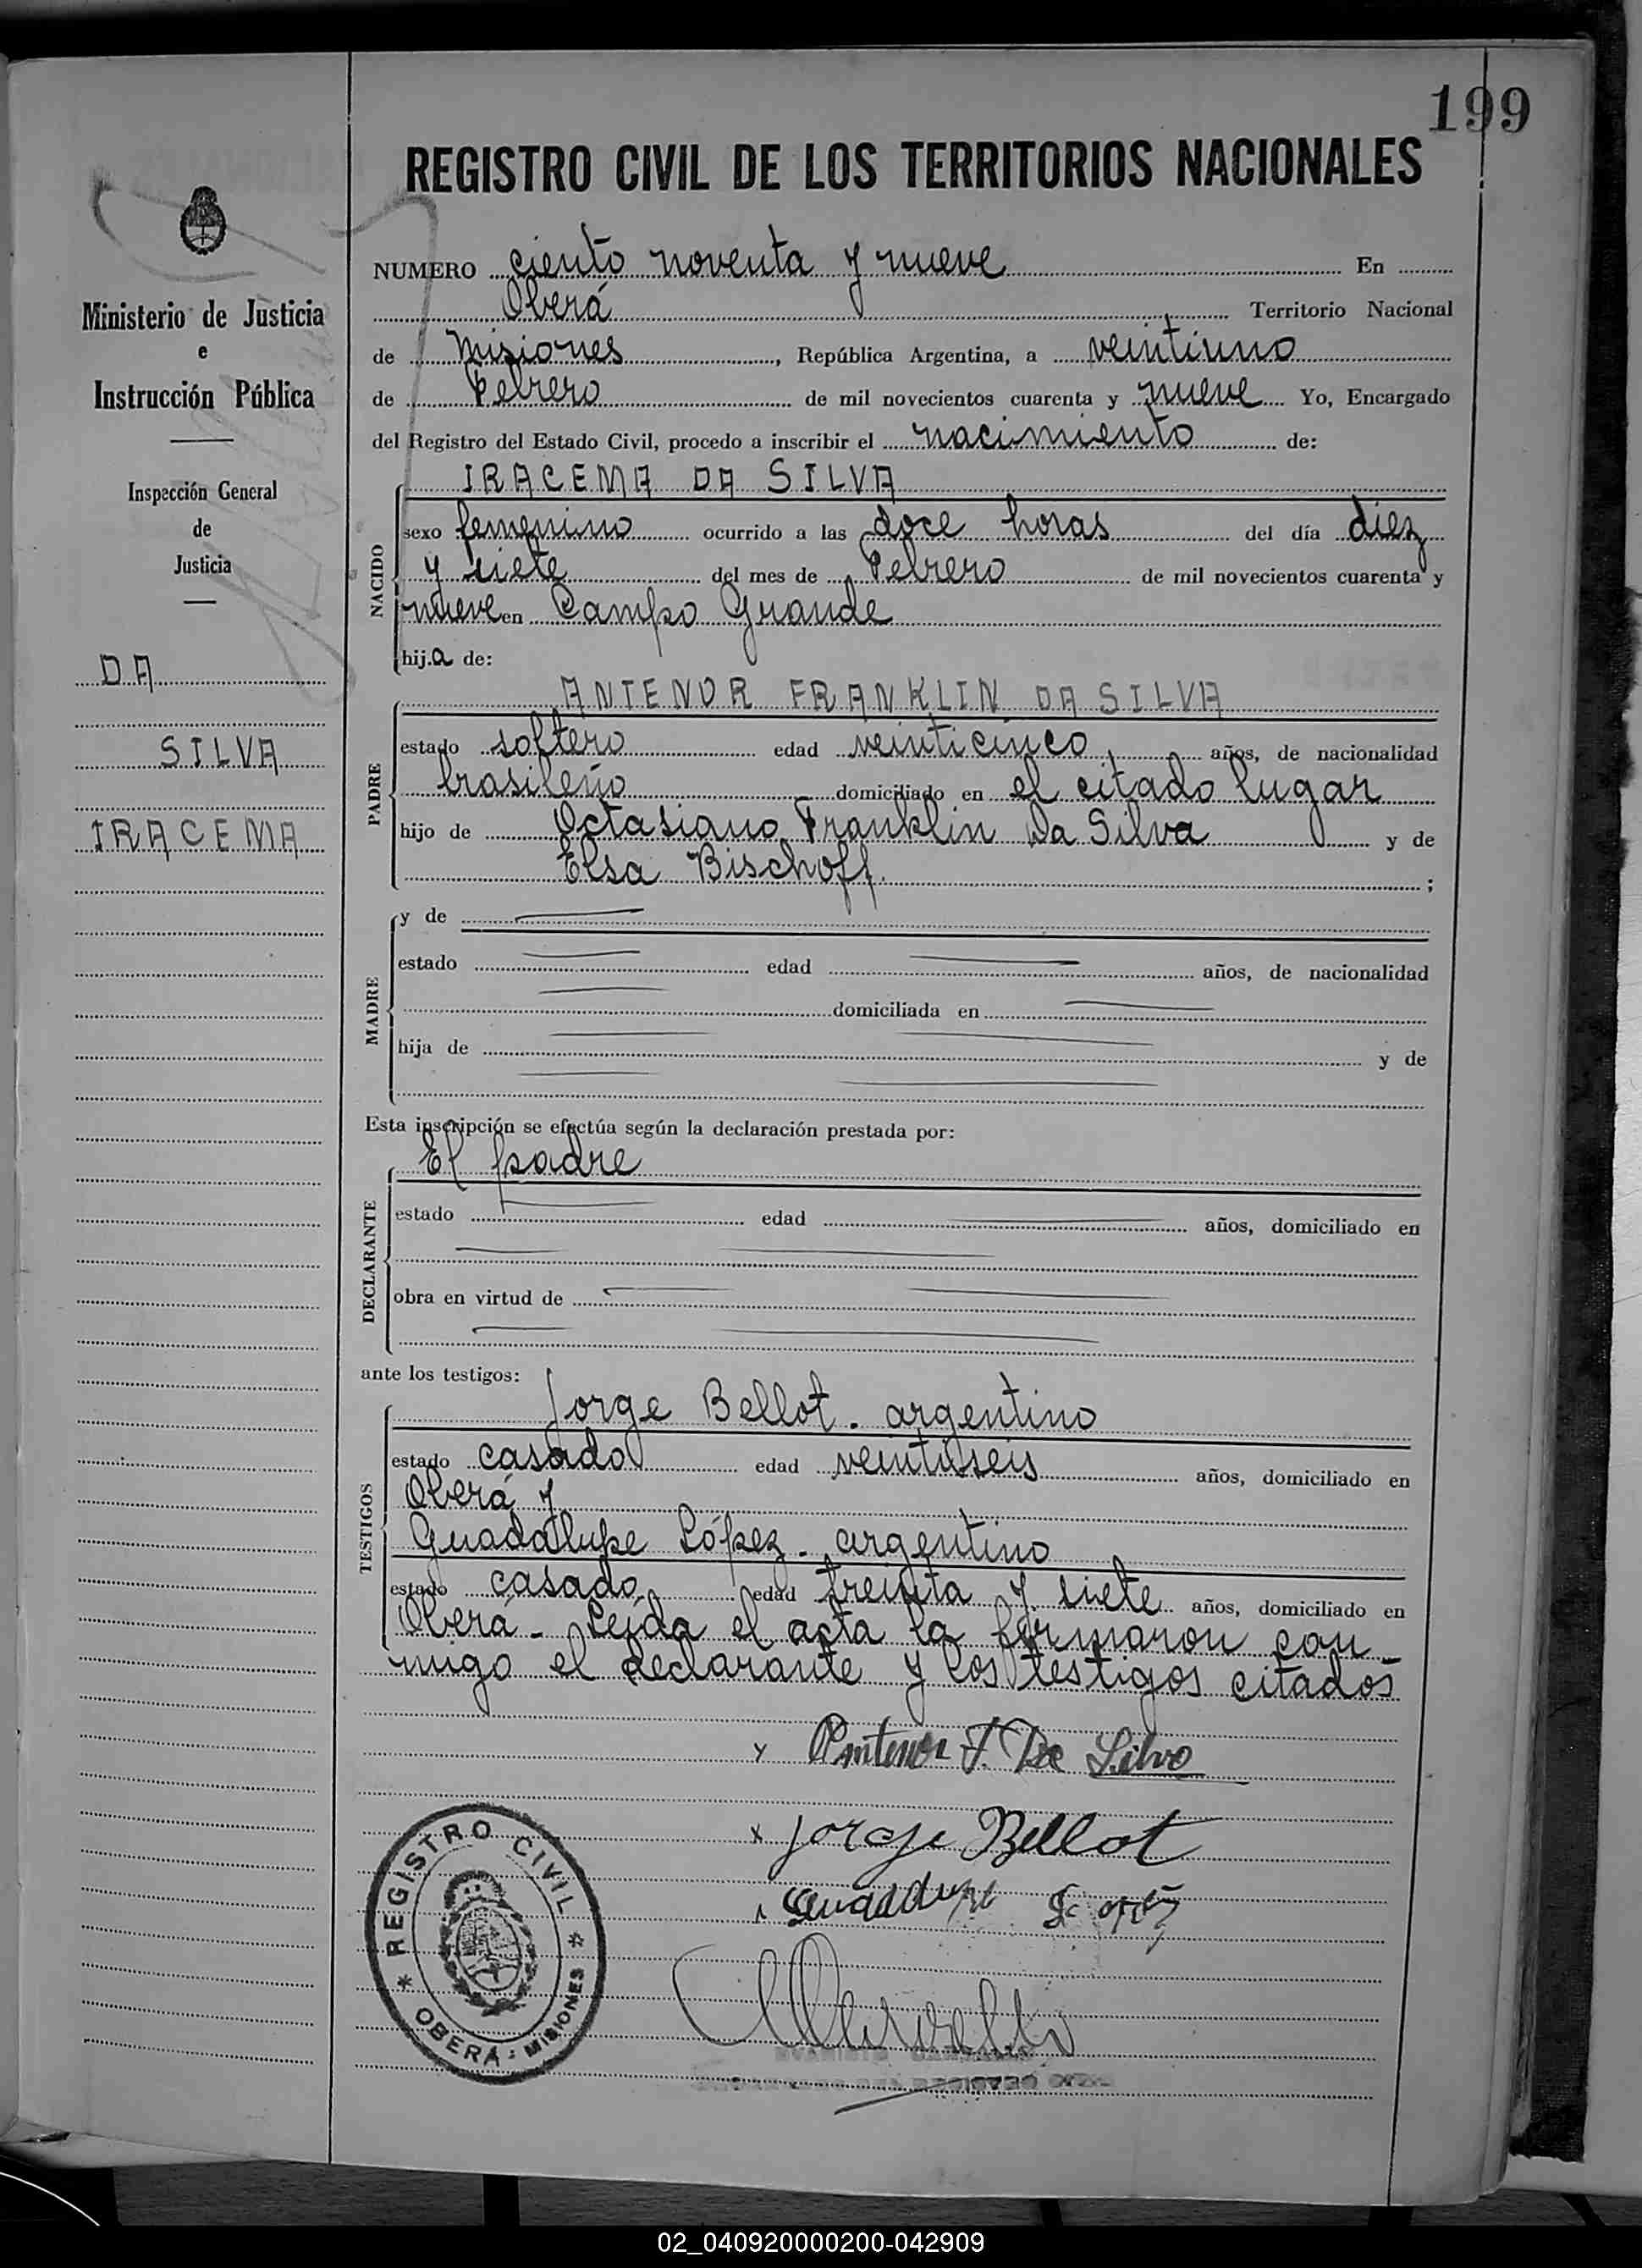 199
REGISTRO CIVIL DE LOS TERRITORIOS NACIONALES
Ministerio de Justicia
e
Instrucción Pública
Inspección General
de
Justicia
DA
SILVA
IRACEMA
NUMERO ciento noventa y nueve En
Oberá Territorio Nacional
de Misiones, República Argentina, a veintiuno
de Febrero de mil novecientos cuarenta y nueve Yo, Encargado
del Registro del Estado Civil, procedo a inscribir el nacimiento de:
NACIDO
IRACEMA DA SILVA
sexo femenino ocurrido a las doce horas del día diez
y siete del mes de Febrero de mil novecientos cuarenta y
nueve en Campo Grande
hij.a de:
PADRE
ANTENOR FRANKLIN DA SILVA
estado soltero edad veinticinco años, de nacionalidad
brasileño domiciliado en el citado lugar
hijo de Octasiano Franklin Da Silva y de
Elsa Bischoff. ;
MADRE
y de
estado edad años, de nacionalidad
domiciliada en
hija de y de
Esta inscripción se efectúa según la declaración prestada por:
DECLARANTE
El padre
estado edad años, domiciliado en
obra en virtud de
ante los testigos:
TESTIGOS
Jorge Bellot. argentino
estado casado edad veintiseis años, domiciliado en
Oberá y
Guadalupe López. argentino
estado casado edad treinta y siete años, domiciliado en
Oberá - Leída el acta la firmaron con-
migo el declarante y los testigos citados
Antenor F. Da Silva
x Jorge Bellot
Guadalupe López
REGISTRO CIVIL
OBERÁ - MISIONES
02_040920000200-042909